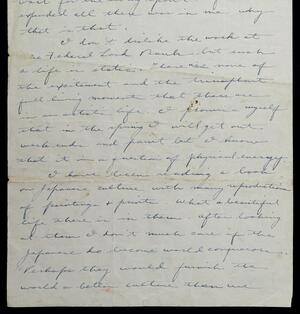 wait for the
expended all there was in me why
that is that.
I don't dislike the work at
the Federal Land Bank but such
a life is static. There is none of
the excitement and the triumphant
full living moment that there are
in an artistic life. I promise myself
that in the spring I will get out
week ends and paint but I know
that it is a question of physical energy.
I have been reading a book
on Japanese culture with many reproductions
of paintings & prints. What a beautiful
life there is in them after looking
at them I don't much care if the
Japanese do become world conquerors.
Perhaps they would furnish the
world a better culture than we